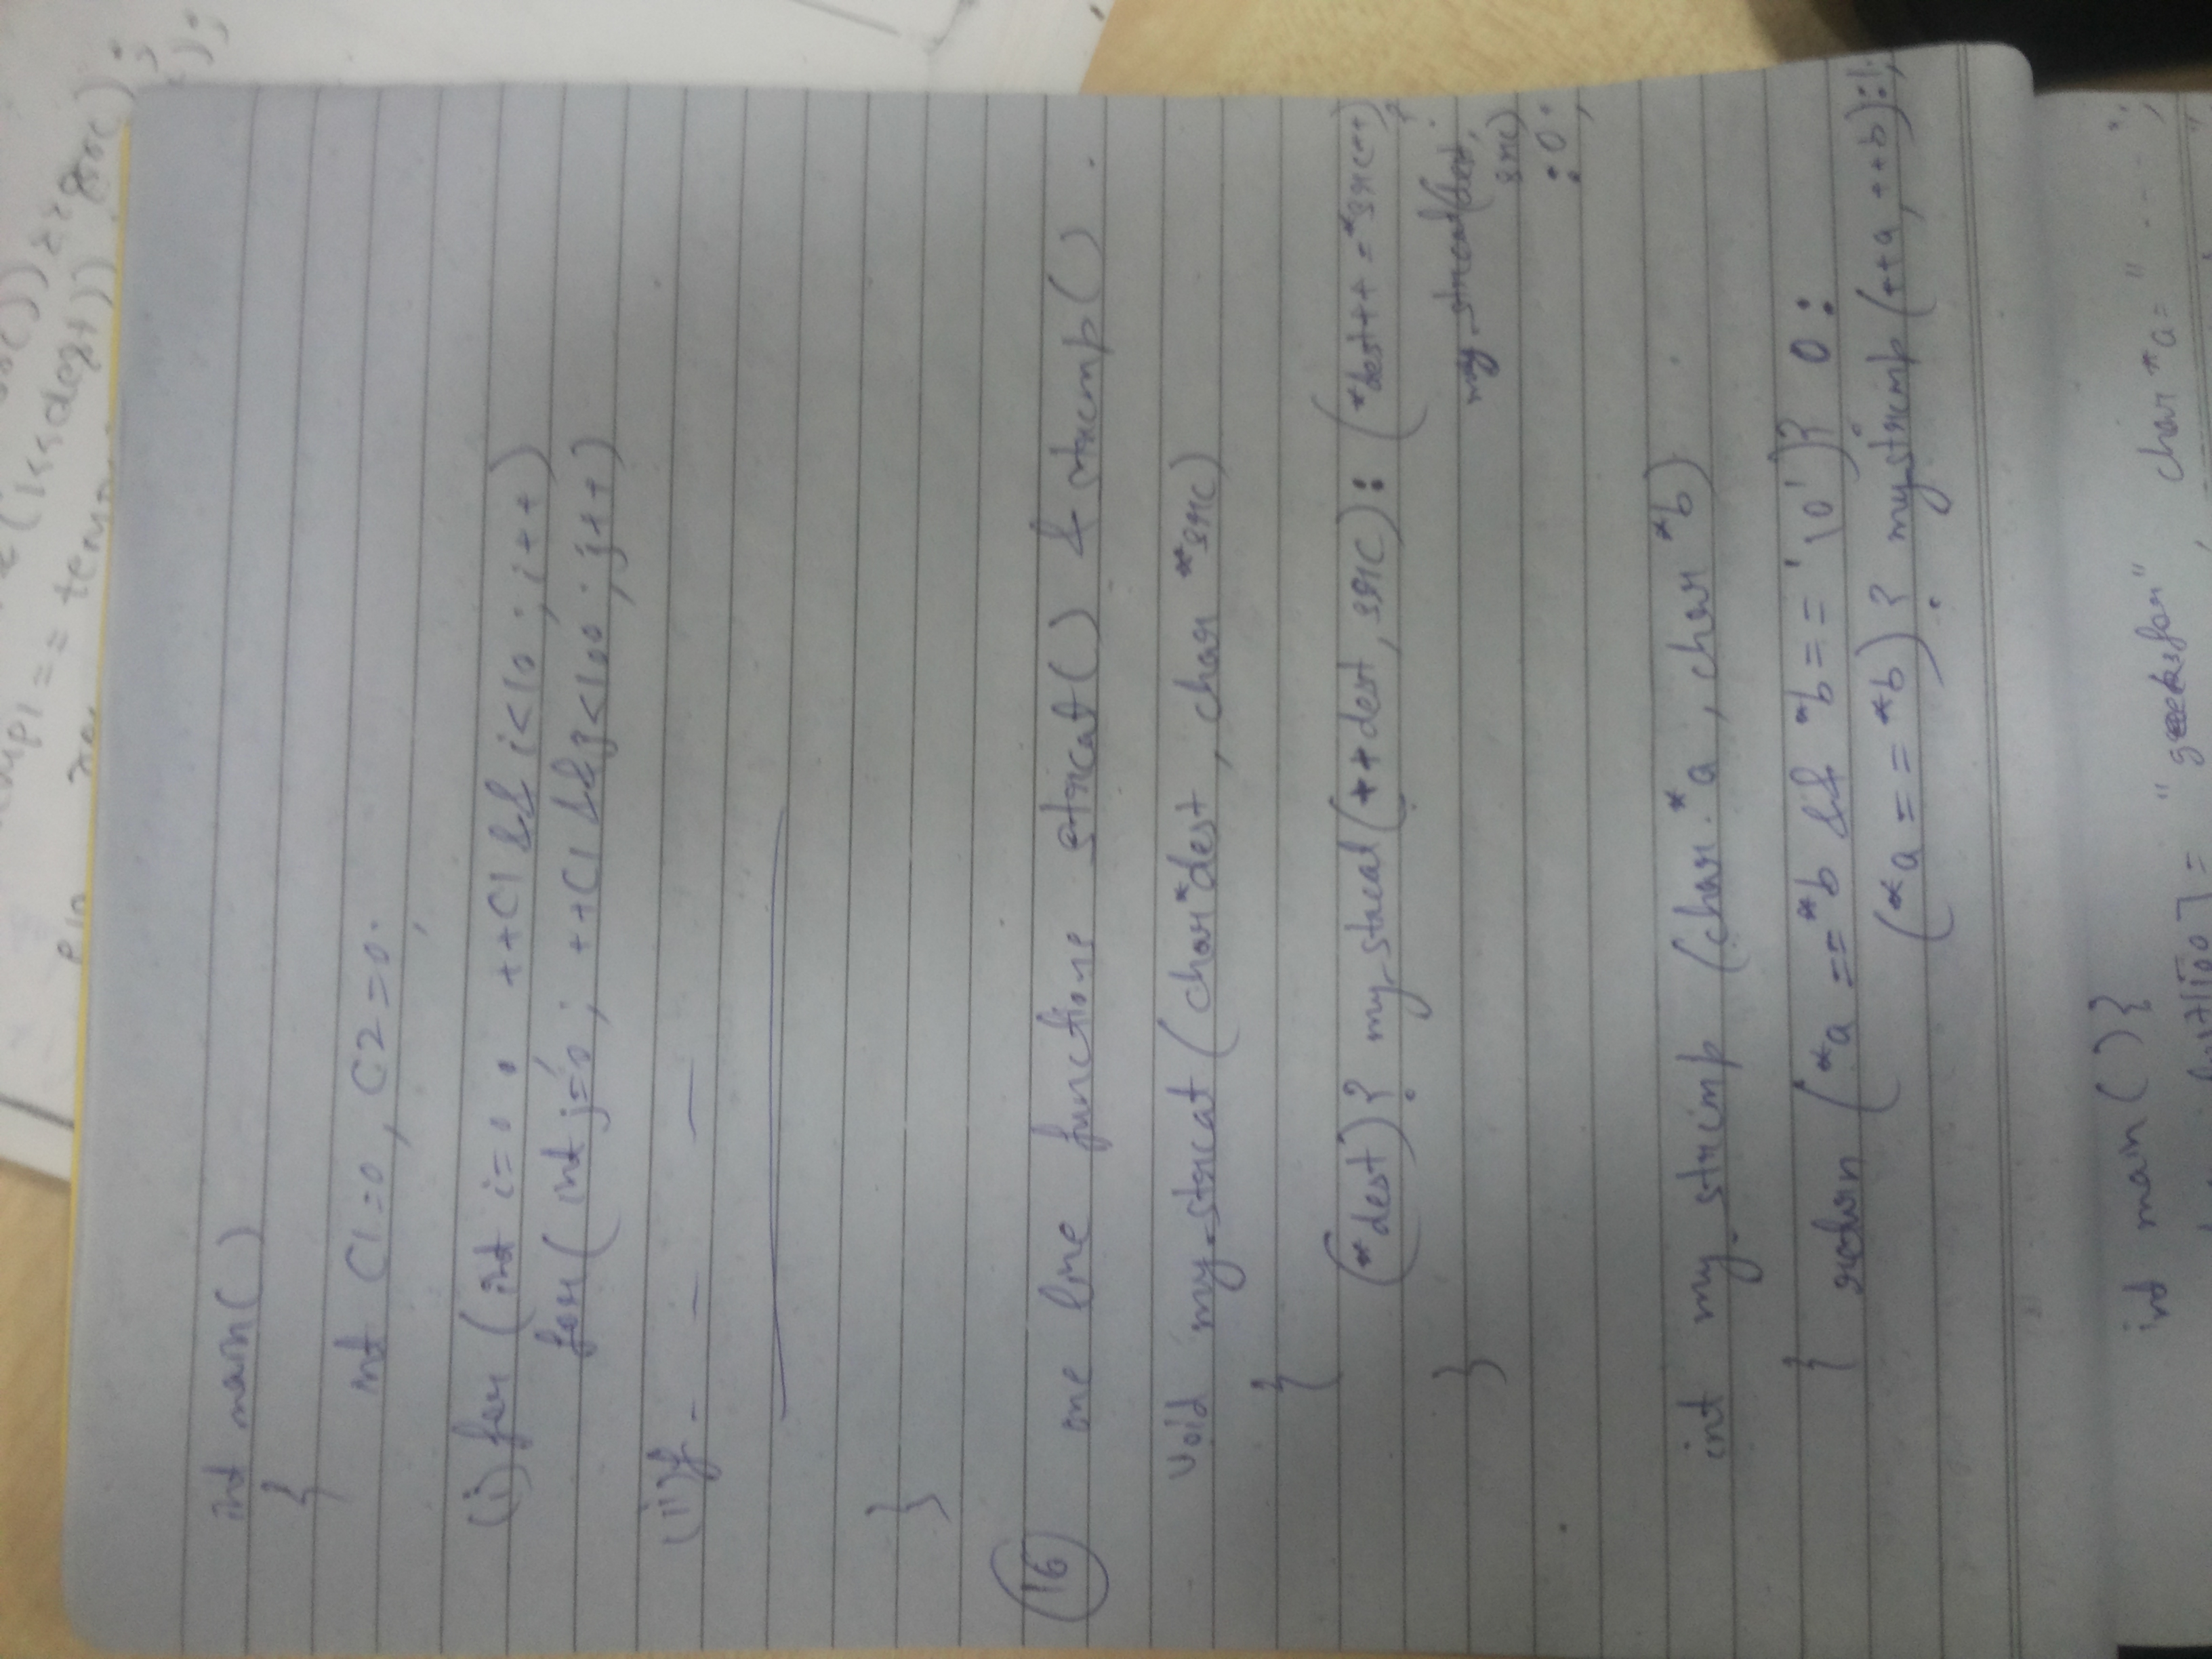 int main()
{
int C1=0, C2=0;
(i) for (int i=0; ++C1 && i<10; i++)
for(int j=0; ++C1 && j<100; j++)
(ii) f - — —
}
16
one line functions strcat() & strcmp().
void my_strcat (char *dest, char *src)
{
(*dest)? my_strcat (++dest, src): (*dest++ = *src++)
?
my_strcat(dest,
src)
:0;
}
int my_strcmp (char *a, char *b)
{ return (*a == *b && *b == '\0')? 0:
(*a == *b)? mystrcmp (++a, ++b):1;
int main(){
[100] = "geeksfor", char *a= " - - - - ";